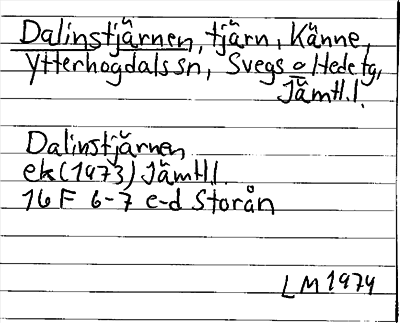 Dalinstjärnen, tjärn, Känne,
Ytterhogdals sn, Svegs o Hede tg,
Jämtl.l.
Dalinstjärnen
ek (1973) Jämtl.l.
16 F 6-7 e-d Storån
LM 1974